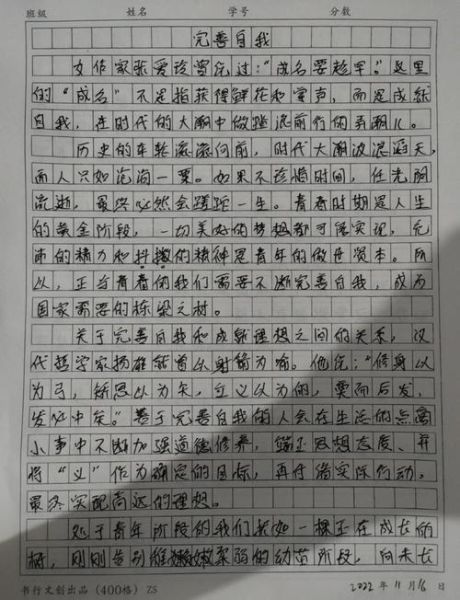 班级 姓名 学号 分数
完善自我
女作家张爱玲曾说过：“成名要趁早。”这里
的“成名”不是指获得鲜花和掌声，而是成就
自我，在时代的大潮中做踏浪前行的弄潮儿。
历史的车轮滚滚向前，时代大潮波浪滔天，
而人只如沧海一粟。如果不珍惜时间，任光阴
流逝，最终必然会蹉跎一生。青春时期是人生
的黄金阶段，一切美好的梦想都可能实现，充
沛的精力和抖擞的精神是青年的做母资本。所
以，正当青春的我们需要不断完善自我，成为
国家需要的栋梁之材。
关于完善自我和成就理想之间的关系，汉
代哲学家扬雄就曾以射箭为喻。他说：“修身以
为弓，矫思以为矢，立义以为的，奠而后发，
发必中矣。”善于完善自我的人会在生活的点滴
小事中不断加强道德修养，端正思想态度，并
将“义”作为确定的目标，再付诸实际行动，
最终实现高远的理想。
处于青年阶段的我们就如一棵正在成长的
树，刚刚告别稚嫩柔弱的幼苗阶段，向未长
书行文创出品（400格）75 2022 年 11 月 16 日